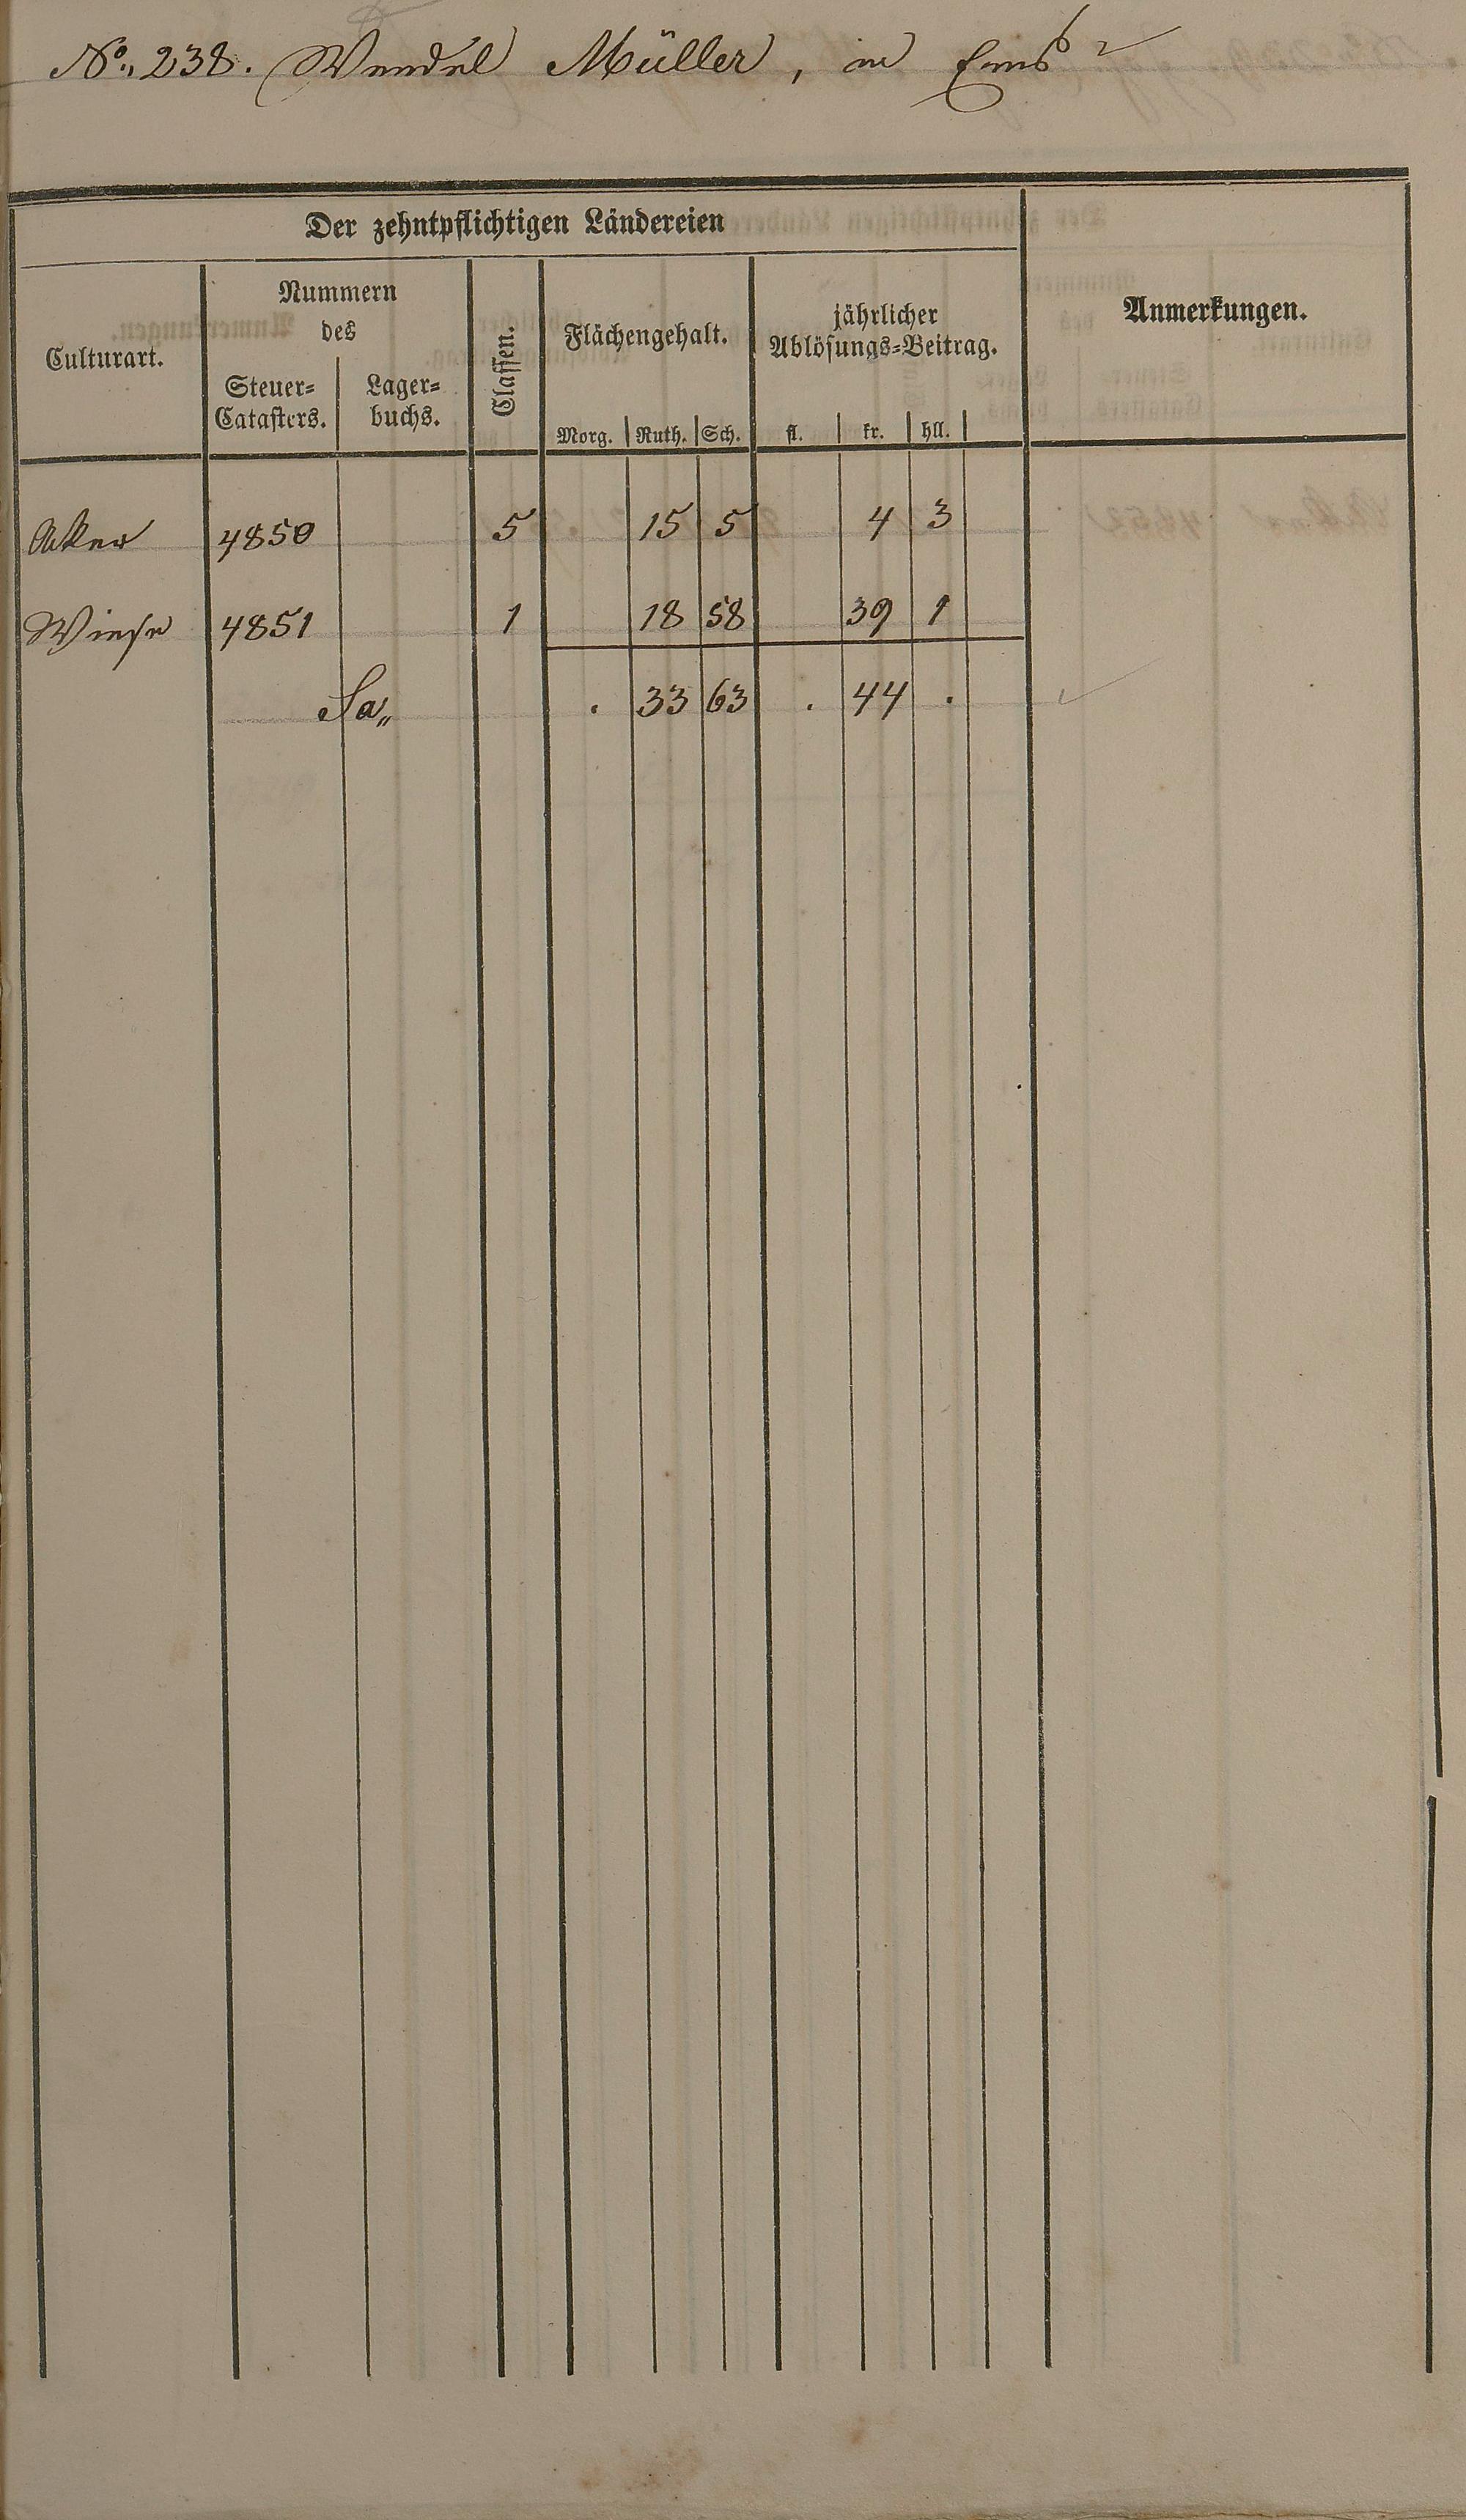 No. 238. Wendel Müller, in Ems
Der zehntpflichtigen Ländereien
Culturart.
Nummern
des
Steuer=
Catasters.
Lager=
buchs.
Classen.
Flächengehalt.
Morg. Ruth. Sch.
jährlicher
Ablösungs=Beitrag.
fl. kr. hll.
Anmerkungen.
Acker 4850 5 15 5 4 3
Wiese 4851 1 18 58 39 1
Sa„ . 33 63 . 44 .